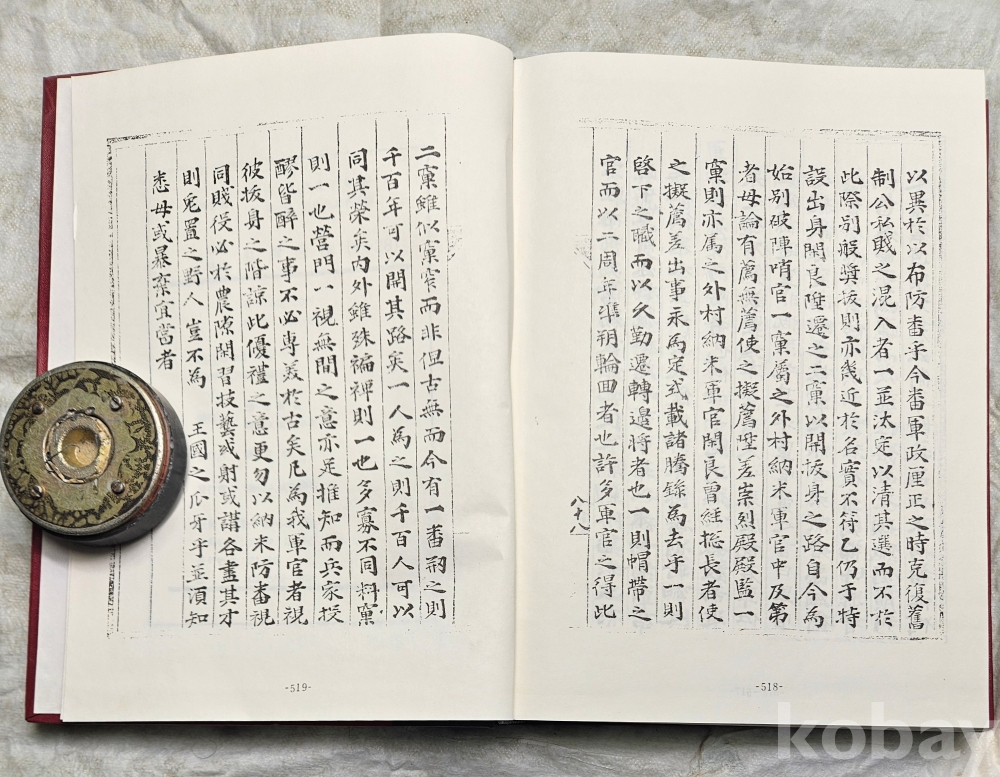 以異於以布防番乎今番軍政厘正之時克復舊
制公私賤之混入者一並汰定以清其選而不於
此際別般奬拔則亦幾近於名實不符乙仍于特
設出身閑良陞遷之二窠以開拔身之路自今為
始別破陣哨官一窠屬之外村納米軍官中及第
者毋論有薦無薦使之擬薦陞差崇烈殿殿監一
窠則亦屬之外村納米軍官閑良曾経摠長者使
之擬薦差出事永為定式載諸謄録為去乎一則
啓下之職而以久勤遷轉邊將者也一則帽帶之
官而以二周年準朔輪回者也許多軍官之得此
八十八
-518-
二窠雖似窠窄而非但古無而今有一番刱之則
千百年可以開其路矣一人為之則千百人可以
同其榮矣內外雖殊褊裨則一也多寡不同料窠
則一也營門一視無間之意亦足推知而兵家投
醪皆醉之事不必專美於古矣凡為我軍官者視
彼拔身之階諒此優禮之意更勿以納米防番視
同賤役必於農隙閑習技藝或射或講各盡其才
則兎置之野人豈不為 王國之爪牙乎並須知
悉毋或暴棄宜當者
-519-
kobay